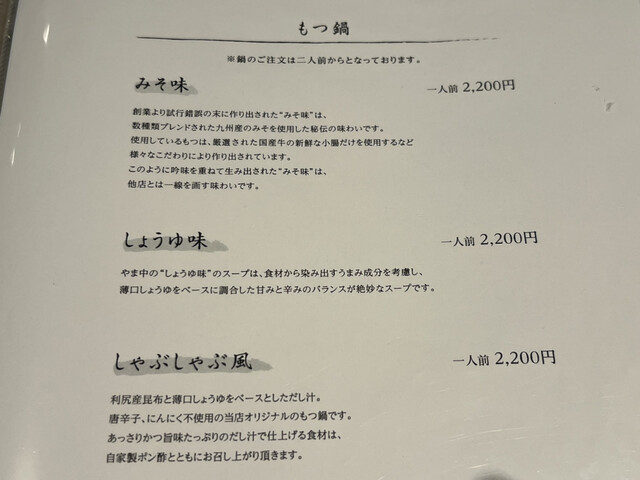 もつ鍋
※鍋のご注文は二人前からとなっております。
みそ味
一人前 2,200円
創業より試行錯誤の末に作り出された“みそ味”は、
数種類ブレンドされた九州産のみそを使用した秘伝の味わいです。
使用しているもつは、厳選された国産牛の新鮮な小腸だけを使用するなど
様々なこだわりにより作り出されています。
このように吟味を重ねて生み出された“みそ味”は、
他店とは一線を画す味わいです。
しょうゆ味
一人前 2,200円
やま中の“しょうゆ味”のスープは、食材から染み出すうまみ成分を考慮し、
薄口しょうゆをベースに調合した甘みと辛みのバランスが絶妙なスープです。
しゃぶしゃぶ風
一人前 2,200円
利尻産昆布と薄口しょうゆをベースとしただし汁。
唐辛子、にんにく不使用の当店オリジナルのもつ鍋です。
あっさりかつ旨味たっぷりのだし汁で仕上げる食材は、
自家製ポン酢とともにお召し上がり頂きます。